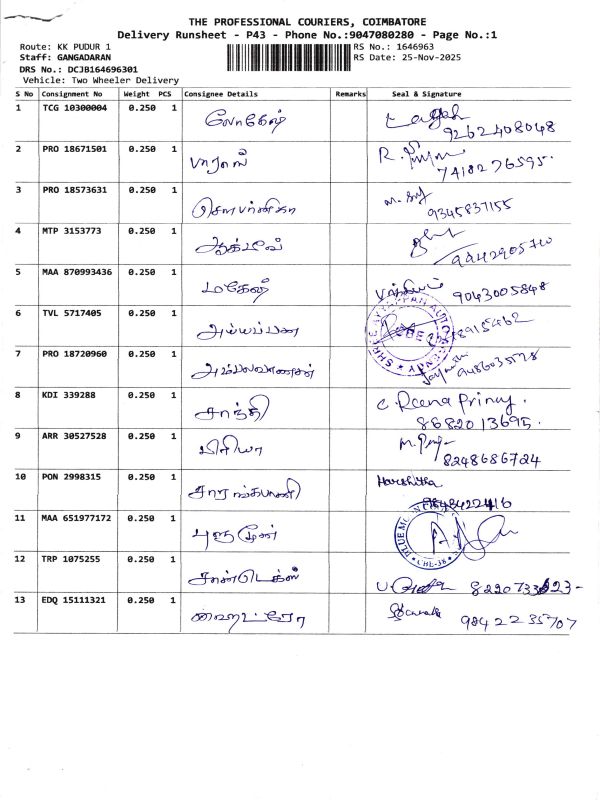 THE PROFESSIONAL COURIERS, COIMBATORE
Delivery Runsheet - P43 - Phone No.:9047080280 - Page No.:1
Route: KK PUDUR 1 RS No.: 1646963
Staff: GANGADARAN RS Date: 25-Nov-2025
DRS No.: DCJB164696301
Vehicle: Two Wheeler Delivery
S No Consignment No Weight PCS Consignee Details Remarks Seal & Signature
1 TCG 10300004 0.250 1 லோகேஷ்
9262408048
2 PRO 18671501 0.250 1 பாரஸ் R.
7418276595.
3 PRO 18573631 0.250 1 சௌபர்ணிகா
9345837155
4 MTP 3153773 0.250 1
9442905710
5 MAA 870993436 0.250 1 மகேஷ்
9043005848
6 TVL 5717405 0.250 1 அய்யப்பன்
7 PRO 18720960 0.250 1 அம்பலவாணன்
9486035578
8 KDI 339288 0.250 1 சாந்தி C. Reena Princy.
8682013695.
9 ARR 30527528 0.250 1 பிரியா
8248686724
10 PON 2998315 0.250 1 சாரங்கபாணி Harshitha
11 MAA 651977172 0.250 1
CBE-38
12 TRP 1075255 0.250 1
13 EDQ 15111321 0.250 1 ஹைட்ரோ
9842235707